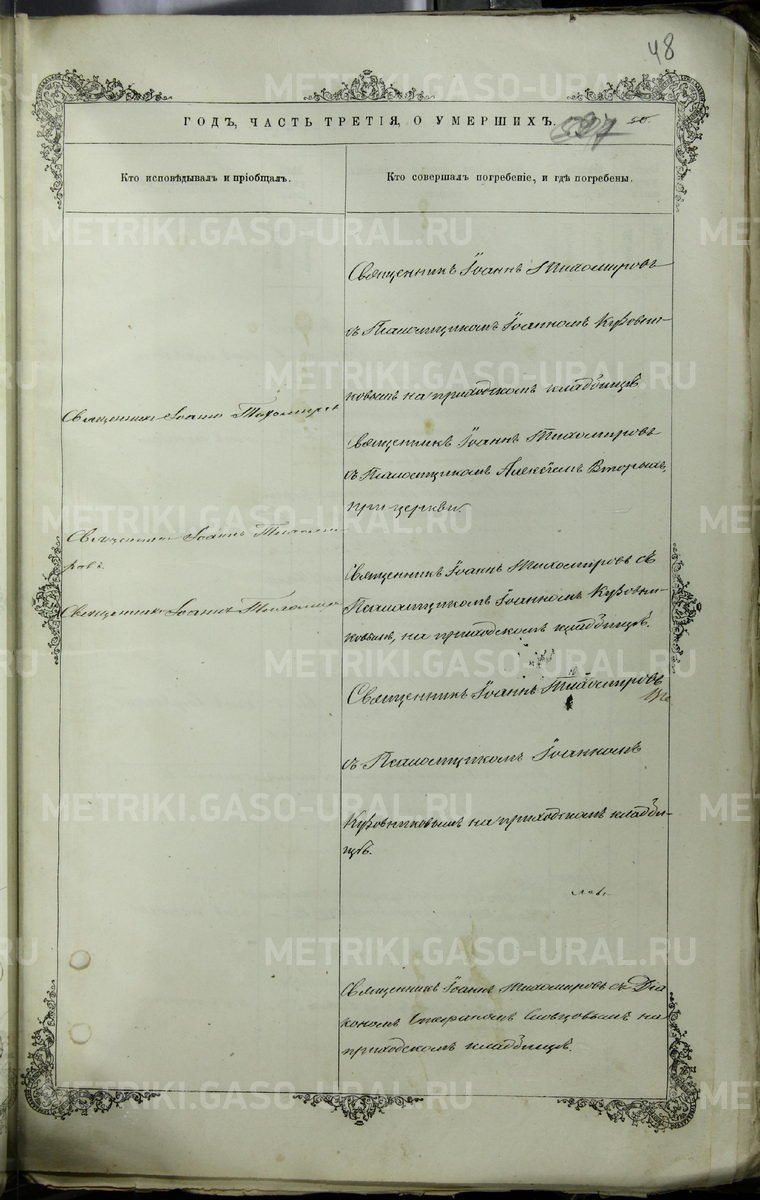 48
ГОДЪ, ЧАСТЬ ТРЕТІЯ, О УМЕРШИХЪ.
Кто исповѣдывалъ и пріобщалъ.
Кто совершалъ погребеніе, и гдѣ погребены.
Священникъ Іоаннъ Тихомировъ
съ Псаломщикомъ Іоанномъ Кузовни-
ковымъ на приходскомъ кладбищѣ
Священникъ Іоаннъ Тихомировъ
Священникъ Іоаннъ Тихомировъ
съ Псаломщикомъ Алексѣемъ
при церкви.
Священникъ Іоаннъ Тихоми-
ровъ.
Священникъ Іоаннъ Тихомировъ съ
Псаломщикомъ Іоанномъ Кузовни-
ковымъ, на приходскомъ кладбищѣ.
Священникъ Іоаннъ Тихомиро
Священникъ Іоаннъ Тихомировъ
съ Псаломщикомъ Іоанномъ
Кузовниковымъ на приходскомъ кладби-
щѣ.
Священникъ Іоаннъ Тихомировъ съ Діа
кономъ Стефаномъ Словцовымъ на
приходскомъ кладбищѣ.
METRIKI.GASO-URAL.RU